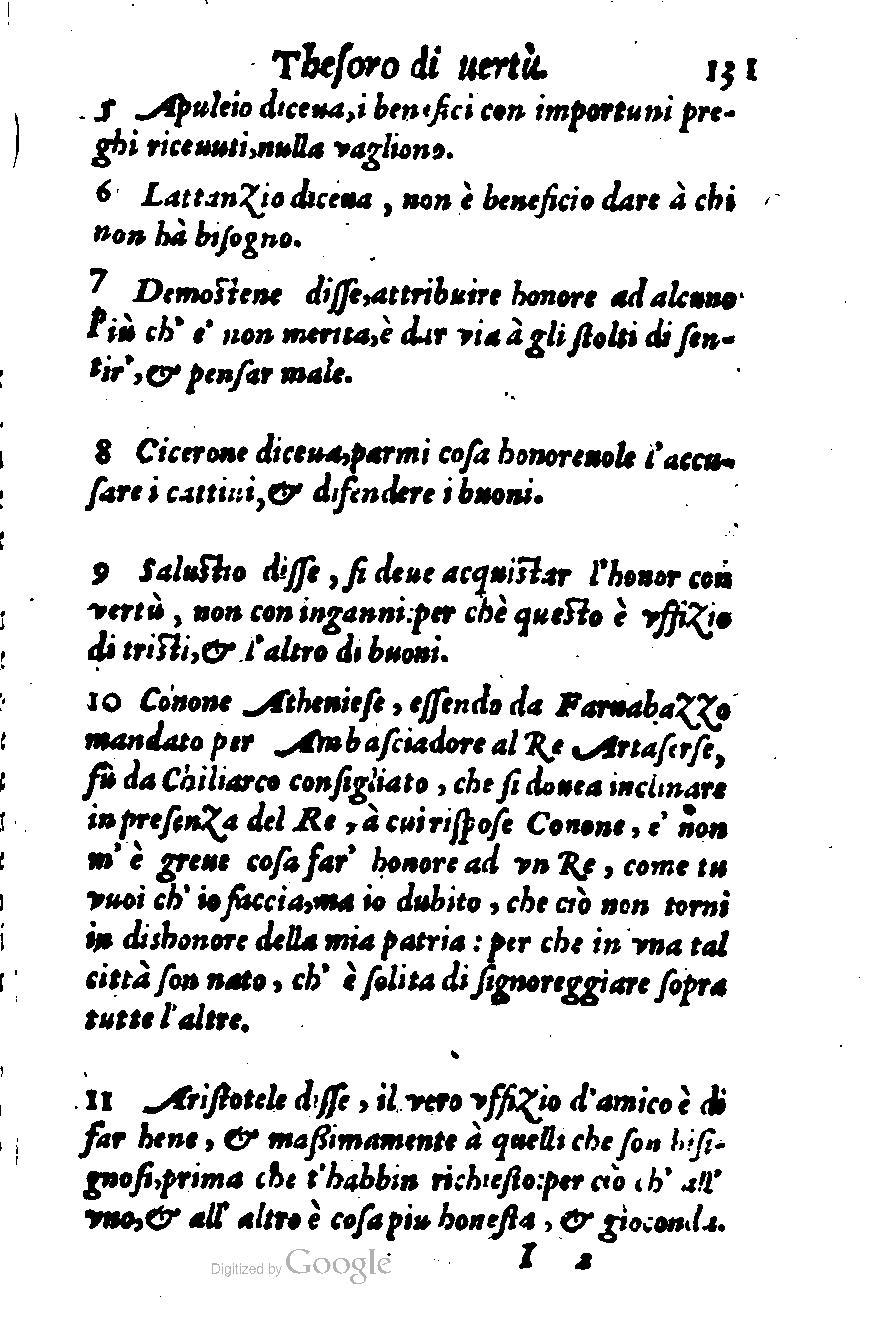 Theſoro di uertù. 131
5 Apuleio diceua, i benefici con importuni pre-
ghi riceuuti, nulla vagliono.
6 Lattanzio diceua, non è beneficio dare à chi
non hà biſogno.
7 Demoſtene diſſe, attribuire honore ad alcuno
più ch' e' non merita, è dar via à gli ſtolti di ſen-
tir', & penſar male.
8 Cicerone diceua, parmi coſa honoreuole l'accu-
ſare i cattiui, & difendere i buoni.
9 Saluſtio diſſe, ſi deue acquiſtar l'honor con
vertù, non con inganni: per chè queſto è vffizio
di triſti, & l'altro di buoni.
10 Conone Athenieſe, eſſendo da Farnabazzo
mandato per Ambaſciadore al Re Artaſerſe,
fù da Chiliarco conſigliato, che ſi douea inclinare
in preſenza del Re, à cui riſpoſe Conone, e' non
m' è greue coſa far' honore ad vn Re, come tu
vuoi ch' io faccia, ma io dubito, che ciò non torni
in dishonore della mia patria: per che in vna tal
città ſon nato, ch' è ſolita di ſignoreggiare ſopra
tutte l'altre.
11 Ariſtotele diſſe, il vero vffizio d'amico è di
far bene, & maßimamente à quelli che ſon biſi-
gnoſi, prima che t'habbin richieſto: per ciò ch' all'
vno, & all' altro è coſa piu honeſta, & gioconda.
I 2
Digitized by Google